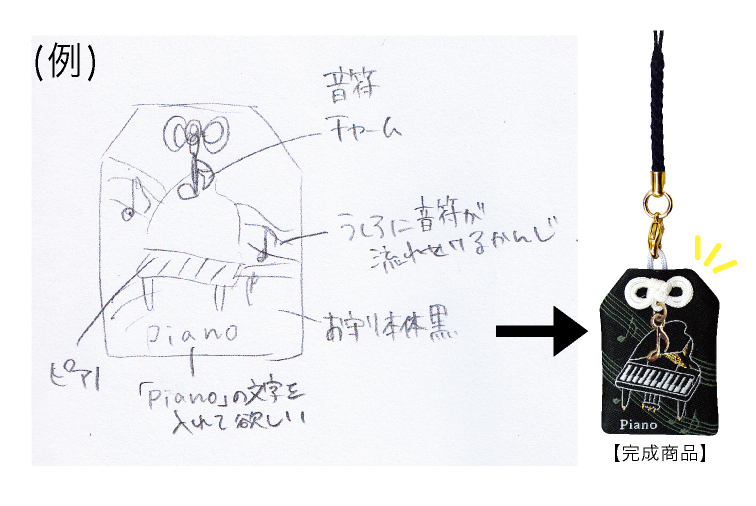 (例)
音符
チャーム
うしろに音符が
流れてけるかんじ
お守り本体黒
piano
ピアノ
「piano」の文字を
入れて欲しい
Piano
【完成商品】